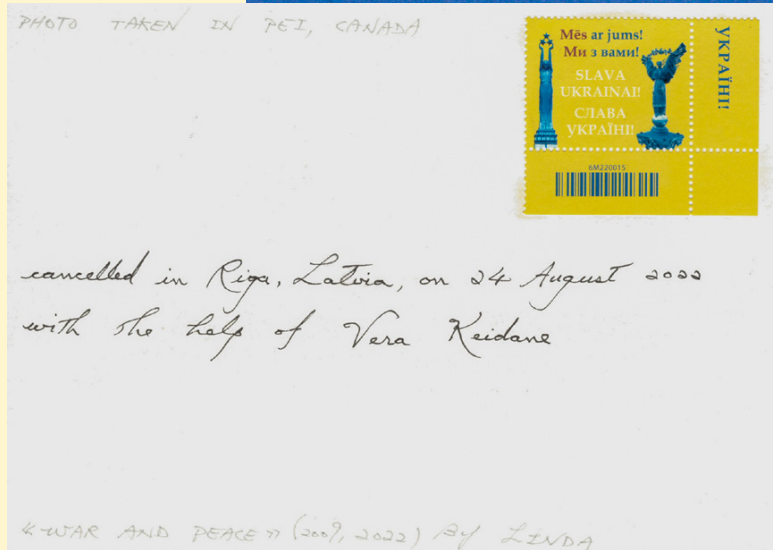 PHOTO TAKEN IN PEI, CANADA
Mēs ar jums!
Ми з вами!
SLAVA
UKRAINAI!
СЛАВА
УКРАЇНІ!
УКРАЇНІ!
6M220015
cancelled in Riga, Latvia, on 24 August 2022
with the help of Vera Keidane
«WAR AND PEACE» (2009, 2022) BY LINDA